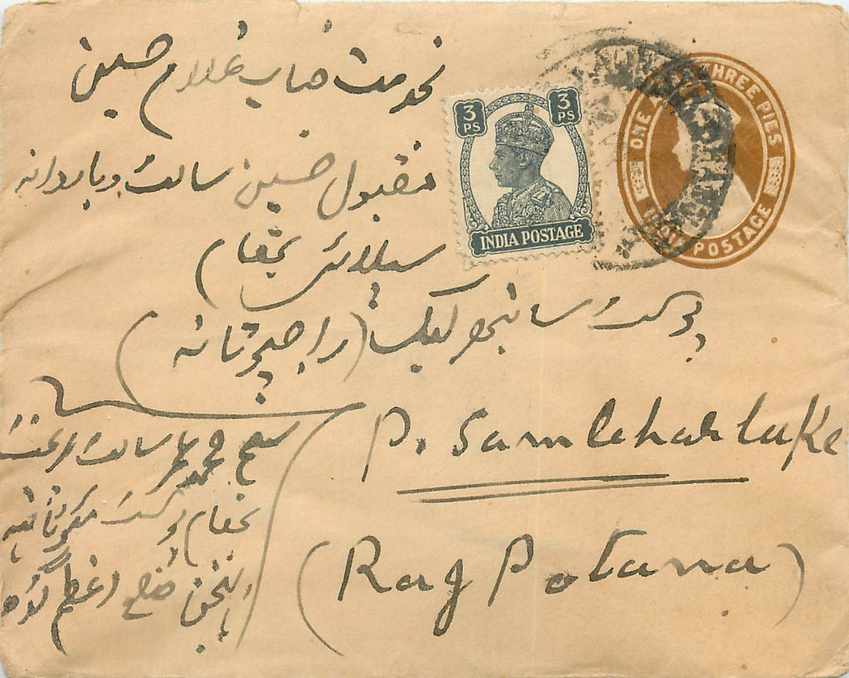 بخدمت جناب غلام حسین
مقبول حسین سالٹ و باردانہ
سپلائر بمقام
پوسٹ سانبھر لیک (راجپوتانہ)
3 PS 3 PS
INDIA POSTAGE
ONE THREE PIES
INDIA POSTAGE
P. Samlcharlake
(Rag Potana)
سالٹ مرچنٹ
بمقام پوسٹ
ضلع اعظم گڑھ